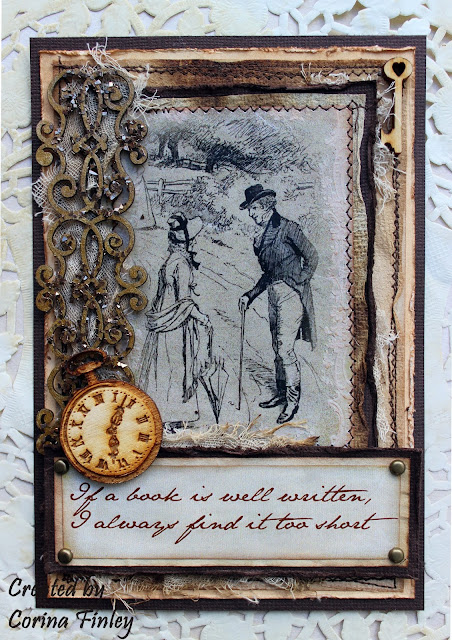 If a book is well written,
I always find it too short
Created by
Corina Finley